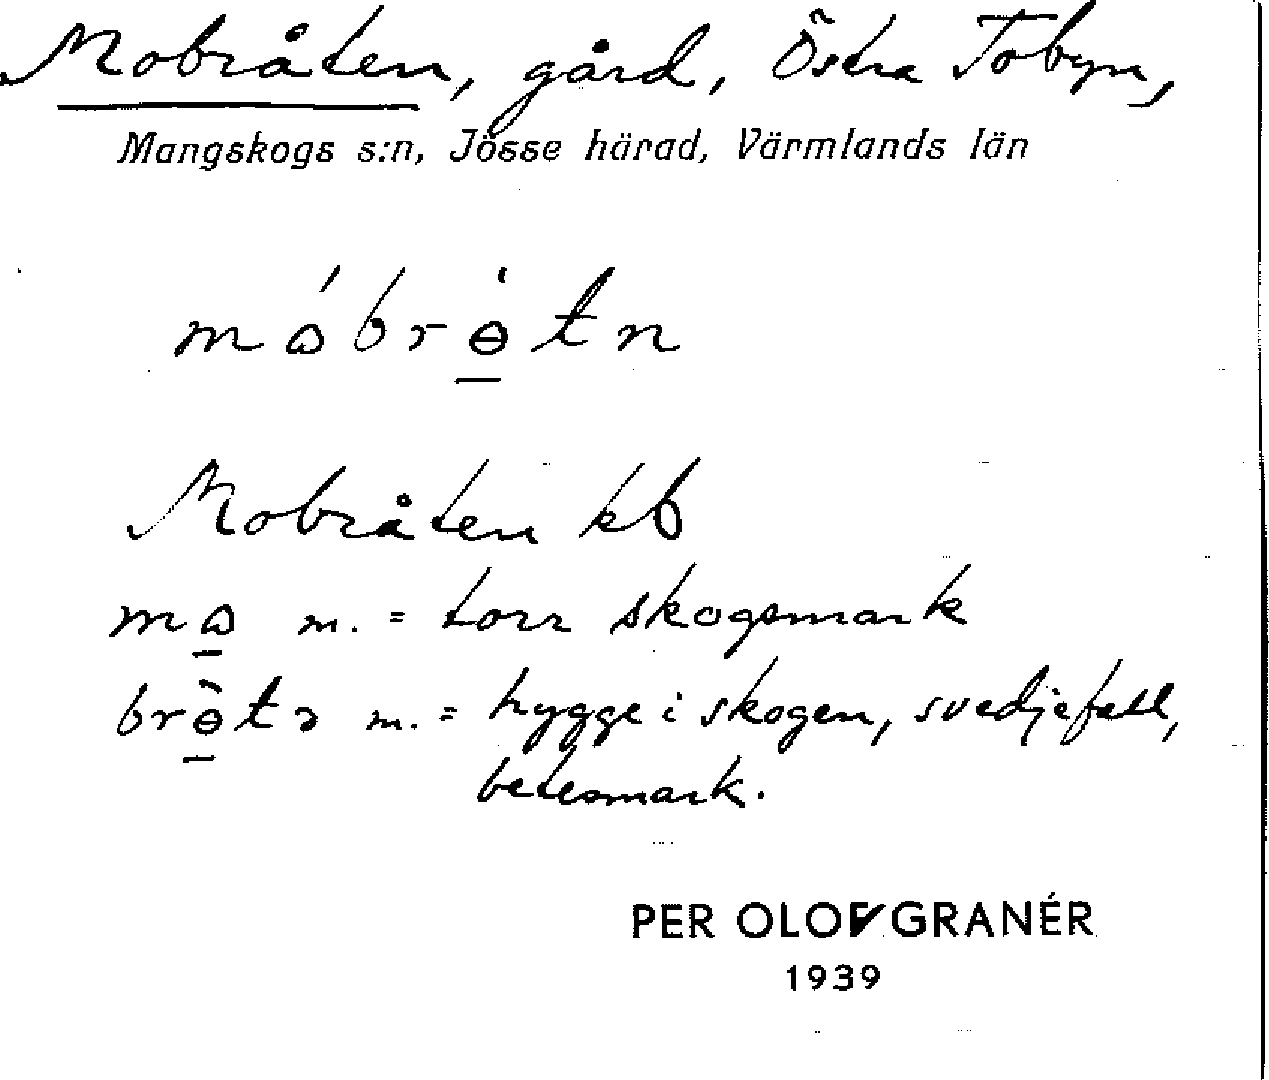 Mobråten, gård, Östra Tobyn,
Mangskogs s:n, Jösse härad, Värmlands län
Mobråten kb
m. = torr skogsmark
m. = hygge i skogen, svedjefall,
betesmark.
PER OLOF GRANÉR
1939